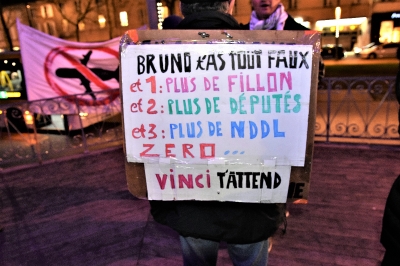 BRUNO t'AS TOUT FAUX
et 1: PLUS DE FILLON
et 2: PLUS DE DÉPUTÉS
et 3: PLUS DE NDDL
ZERO...
VINCI T'ATTEND